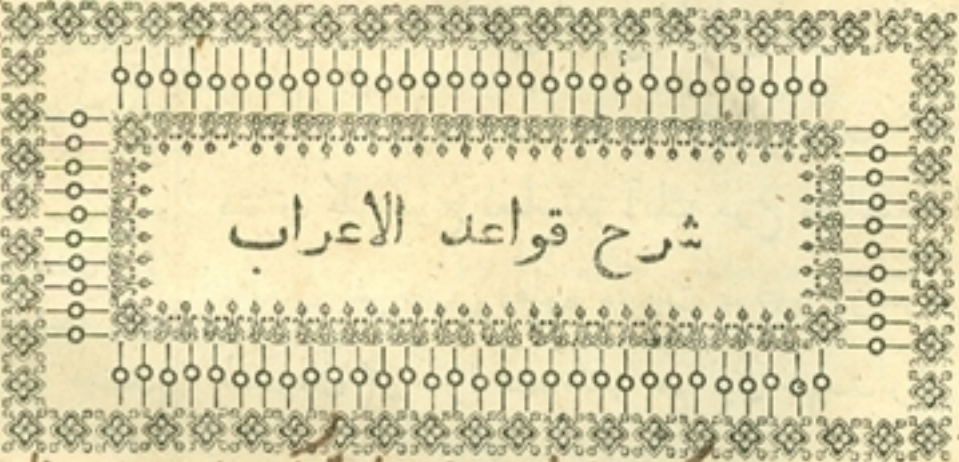 شرح قواعد الاعراب